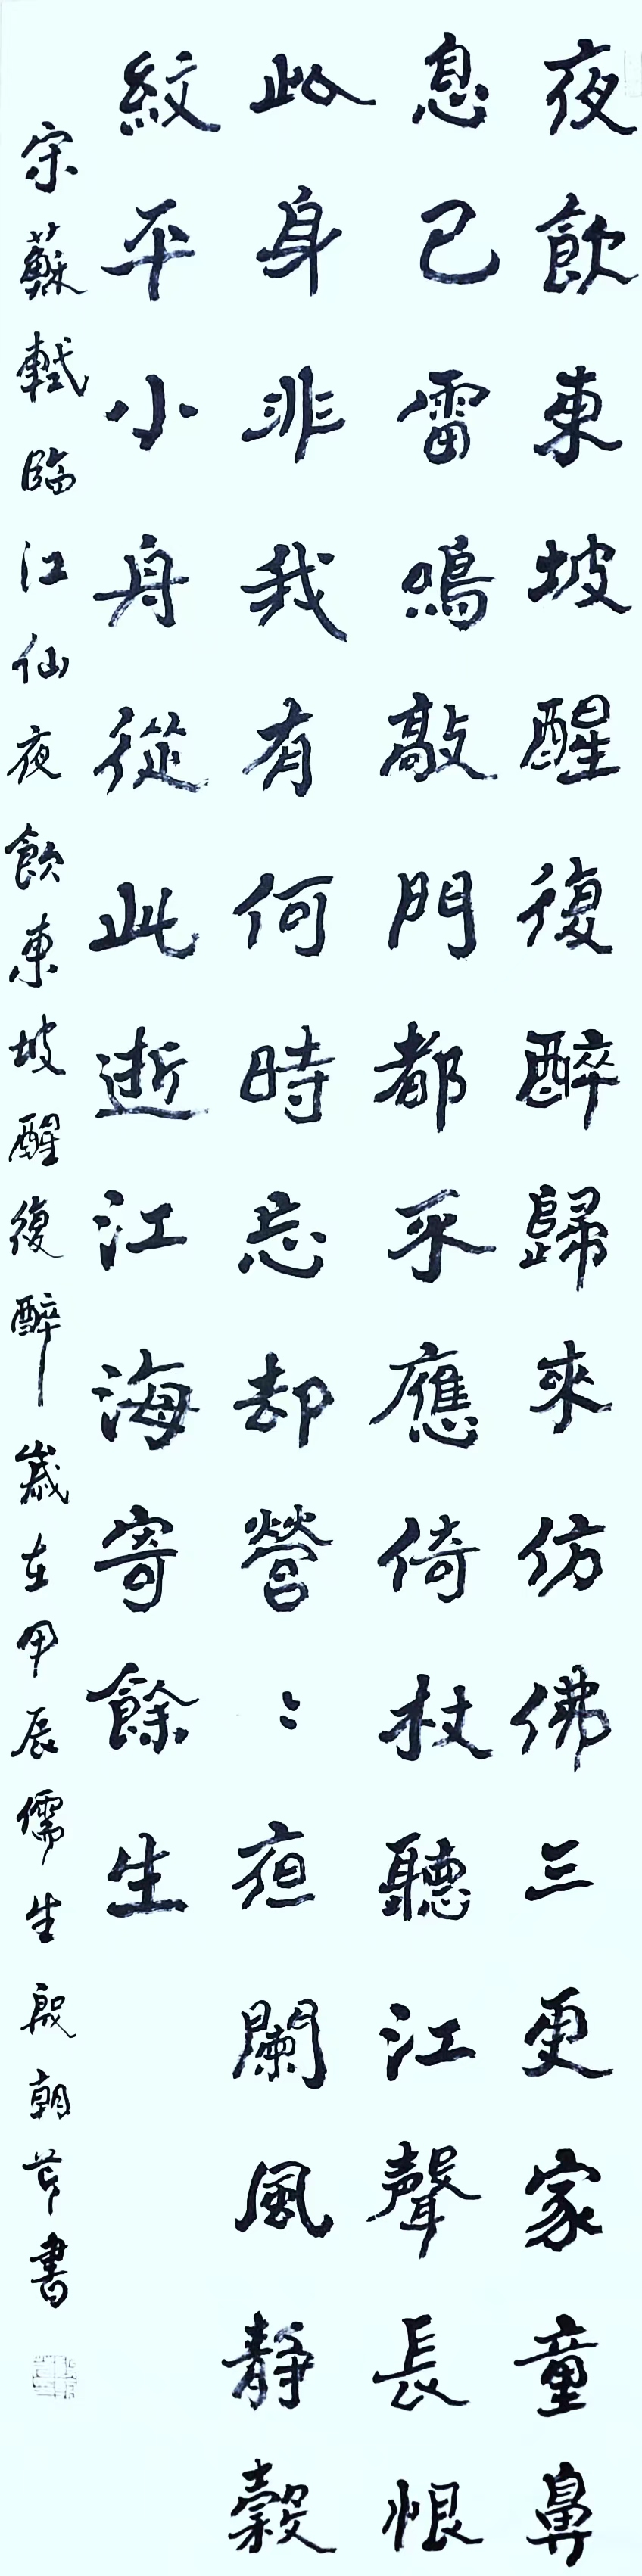 夜飲東坡醒復醉歸來仿佛三更家童鼻
息已雷鳴敲門都不應倚杖聽江聲長恨
此身非我有何時忘却營〻夜闌風靜縠
紋平小舟從此逝江海寄餘生
宋蘇軾臨江仙夜飲東坡醒復醉歲在甲辰儒生殷朝芹書